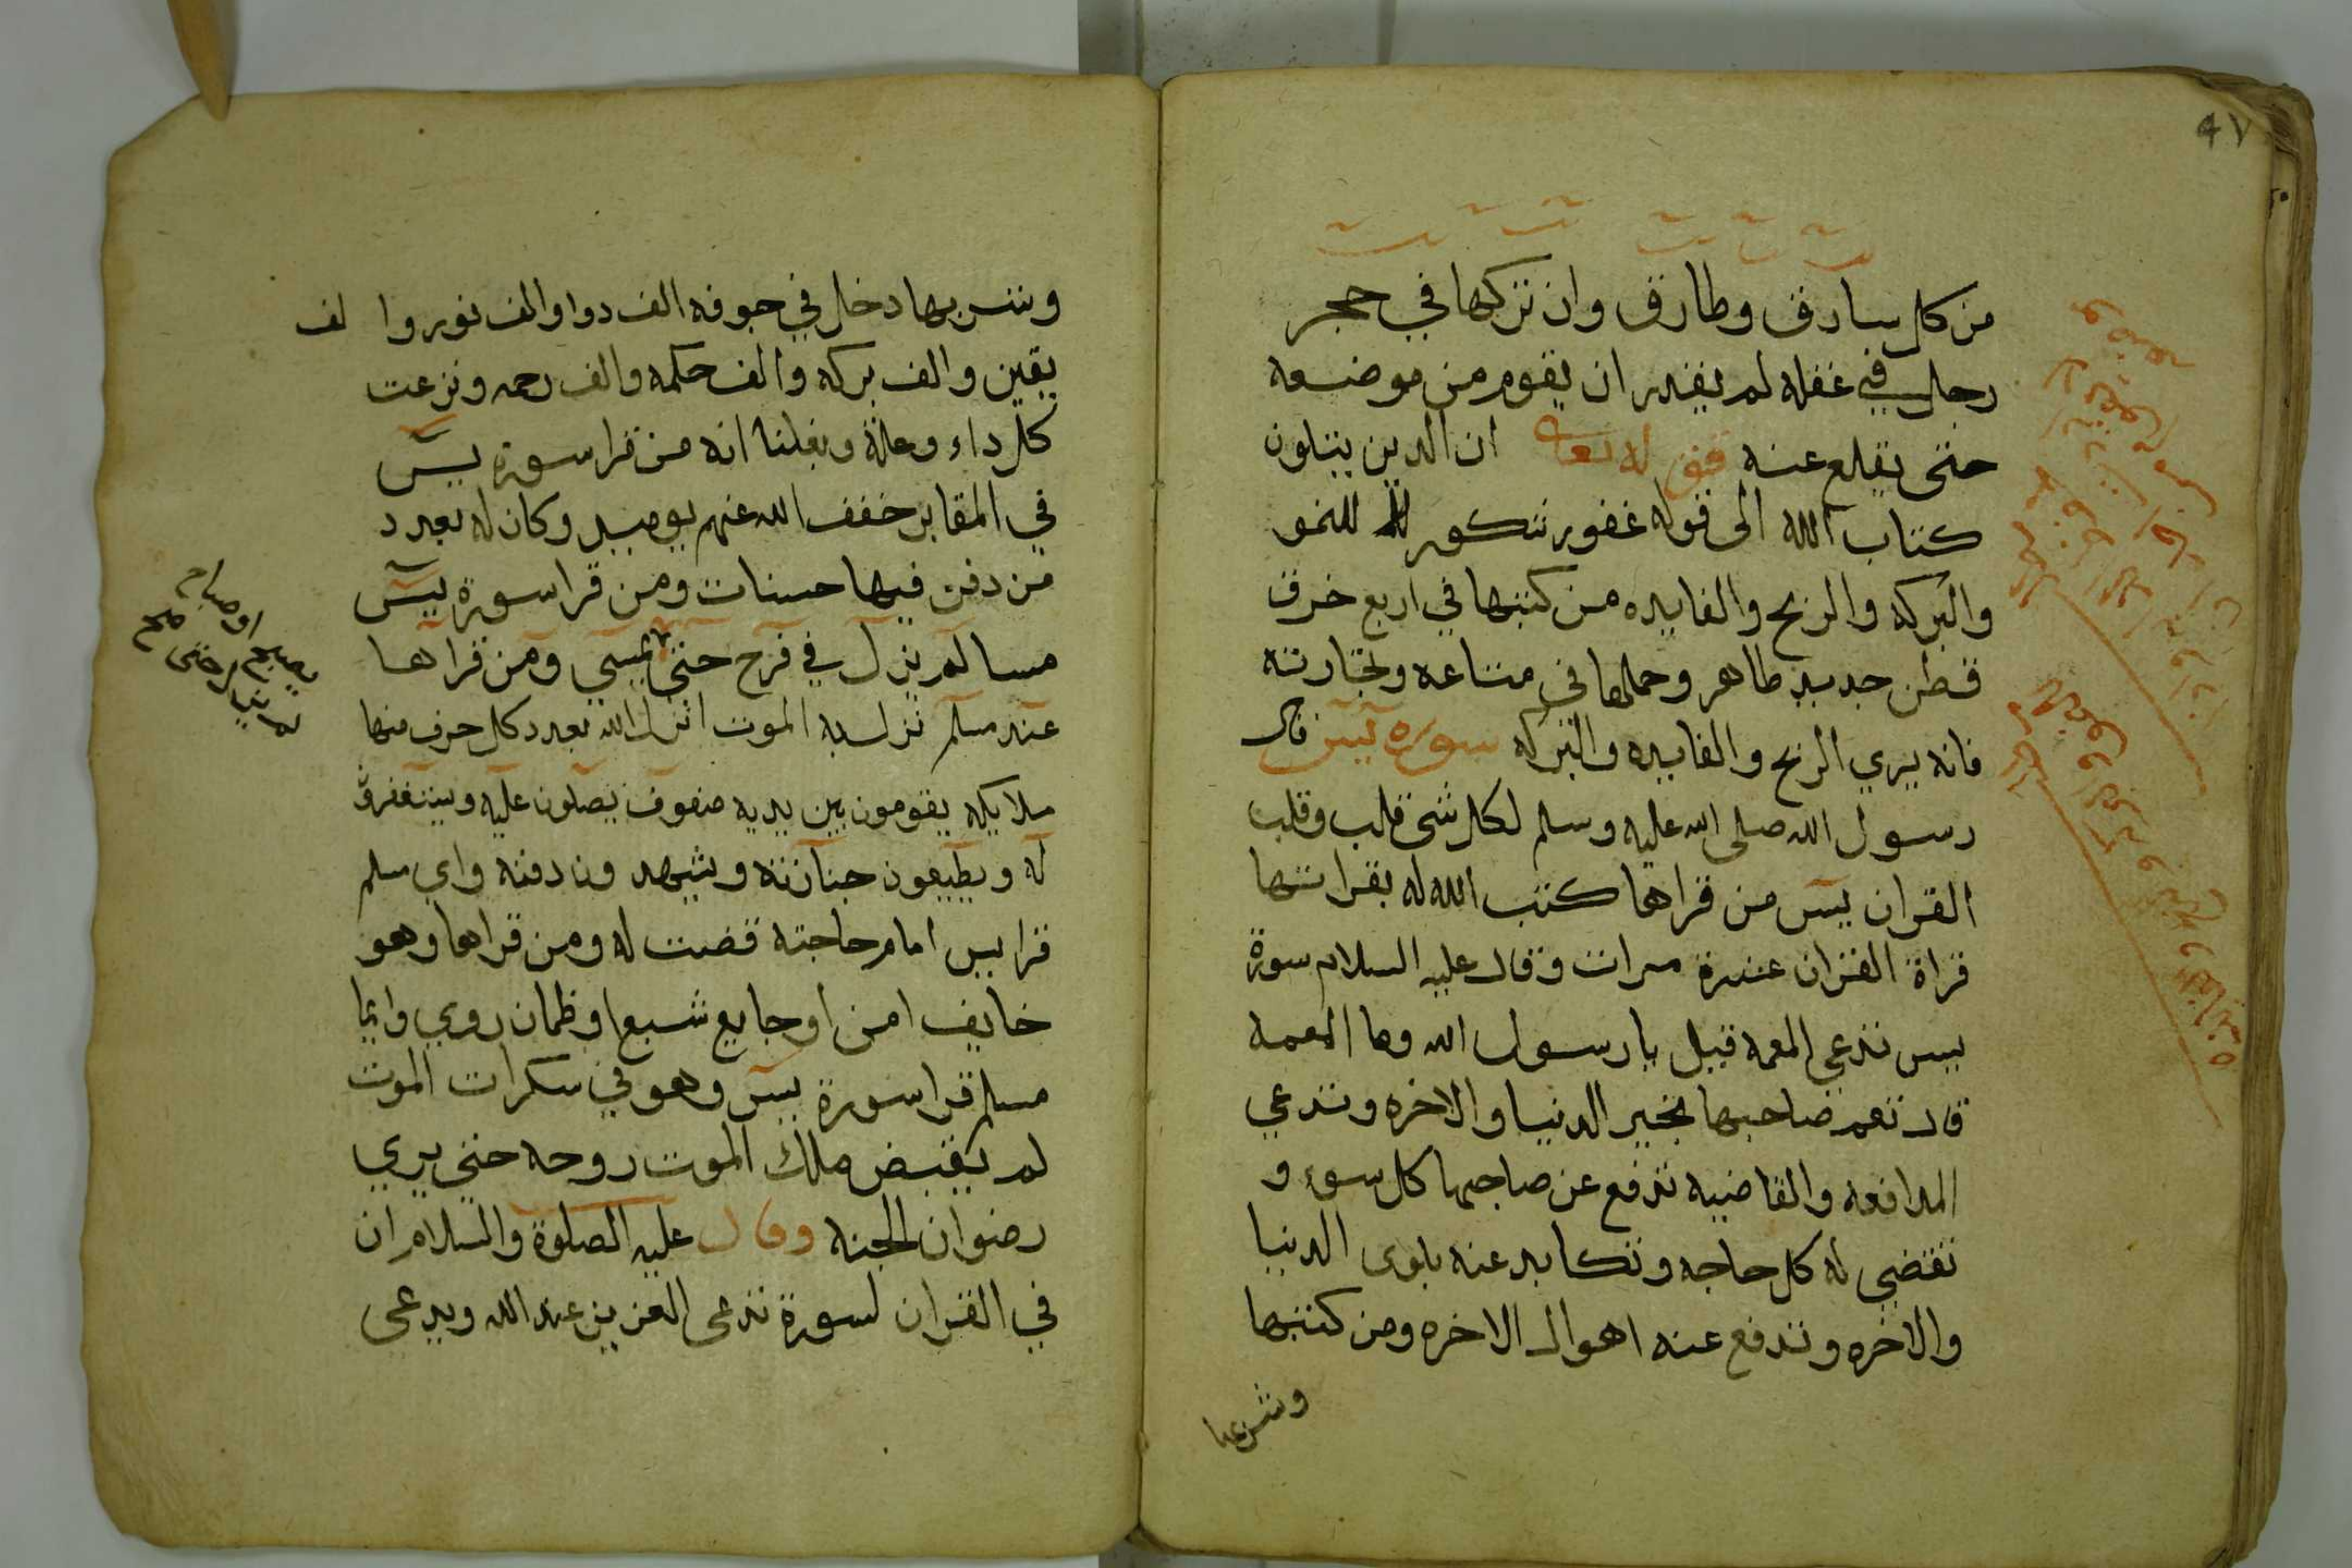 ٤٧
من كل سارق وطارق وان تركها في حجر
رجل في غفله لم يقدر ان يقوم من موضعه
حتى يقلع عنه قوله تعالى ان الدين يتلون
كتاب الله الى قوله غفور شكور للنمو
والبركه والربح والفايده من كتبها في اربع خرق
قطن جديد طاهر وحملها في متاعه وتجارته
فانه يري الربح والفايده والبركه سورة يس قال
رسول الله صلى الله عليه وسلم لكل شى قلب وقلب
القران يس من قراها كتب الله له بقراتها
قراة القران عشرة مرات وقال عليه السلام سورة
يس تدعي المعمه قيل يا رسول الله وما المعمه
قال تعم صاحبها بخير الدنيا والاخره وتدعي
المدافعه والقاضيه تدفع عن صاحبها كل سوء و
تقضي له كل حاجه وتكابد عنه بلوى الدنيا
والاخره وتدفع عنه اهوال الاخره ومن كتبها
وشربها
وشربها دخل في جوفه الف دوا والف نور وا لف
يقين والف بركه والف حكمه والف رحمه ونزعت
كل داء وعلة ونقلنا انه من قرا سورة يس
في المقابر خفف الله عنهم يوميد وكان له بعدد
من دفن فيها حسنات ومن قرا سورة يس
مسا لم يزل في فرح حتى يمسي ومن قراها
عند مسلم نزل به الموت انزل الله بعدد كل حرف منها
ملايكه يقومون بين يديه صفوف يصلون عليه ويستغفرو
له ويطيعون جنازته ويشهد ون دفنه واي مسلم
قرا يس امام حاجته قضت له ومن قراها وهو
خايف امن او جايع شبع او ظمان روي وايما
مسلم قرا سورة يس وهو في سكرات الموت
لم يقبض ملك الموت روحه حتى يري
رضوان الجنه وقال عليه الصلوة والسلام ان
في القران لسورة تدعى العزيز عند الله ويدعى